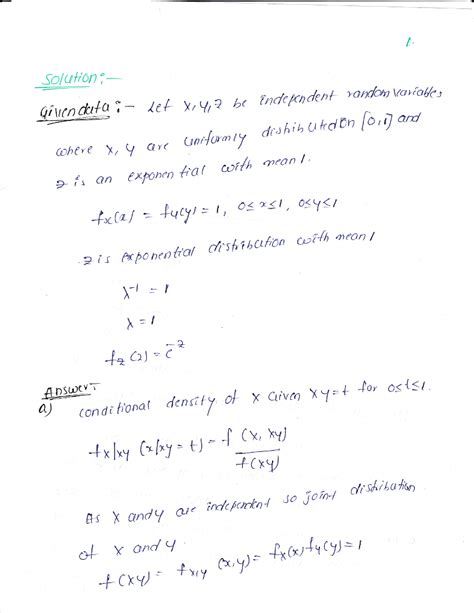 1.
Solution:-
Given data:- Let X,Y,Z be independent random variables
where X, Y are uniformly distributed on [0,1] and
Z is an exponential with mean 1.
fx(x) = fy(y) = 1, 0≤x≤1, 0≤y≤1
Z is exponential distribution with mean 1
λ⁻¹ = 1
λ = 1
fz(z) = e⁻ᶻ
Answer:
a) conditional density of X Given XY=t for 0≤t≤1.
fx|xy (x|xy = t) = f(x, xy) / f(xy)
As X and Y are independent so joint distribution
of X and Y.
f(xy) = fx,y (x,y) = fx(x) fy(y) = 1